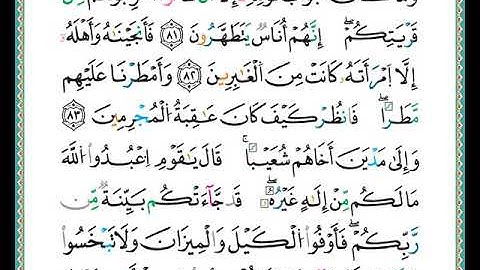 قَرْيَتِكُمْ ۖ إِنَّهُمْ أُنَاسٌ يَتَطَهَّرُونَ ﴿٨١﴾ فَأَنجَيْنَٰهُ وَأَهْلَهُۥٓ
إِلَّا ٱمْرَأَتَهُۥ كَانَتْ مِنَ ٱلْغَٰبِرِينَ ﴿٨٢﴾ وَأَمْطَرْنَا عَلَيْهِم
مَّطَرًا ۖ فَٱنظُرْ كَيْفَ كَانَ عَٰقِبَةُ ٱلْمُجْرِمِينَ ﴿٨٣﴾
وَإِلَىٰ مَدْيَنَ أَخَاهُمْ شُعَيْبًا ۗ قَالَ يَٰقَوْمِ ٱعْبُدُوا۟ ٱللَّهَ
مَا لَكُم مِّنْ إِلَٰهٍ غَيْرُهُۥ ۖ قَدْ جَآءَتْكُم بَيِّنَةٌ مِّن
رَّبِّكُمْ ۖ فَأَوْفُوا۟ ٱلْكَيْلَ وَٱلْمِيزَانَ وَلَا تَبْخَسُوا۟